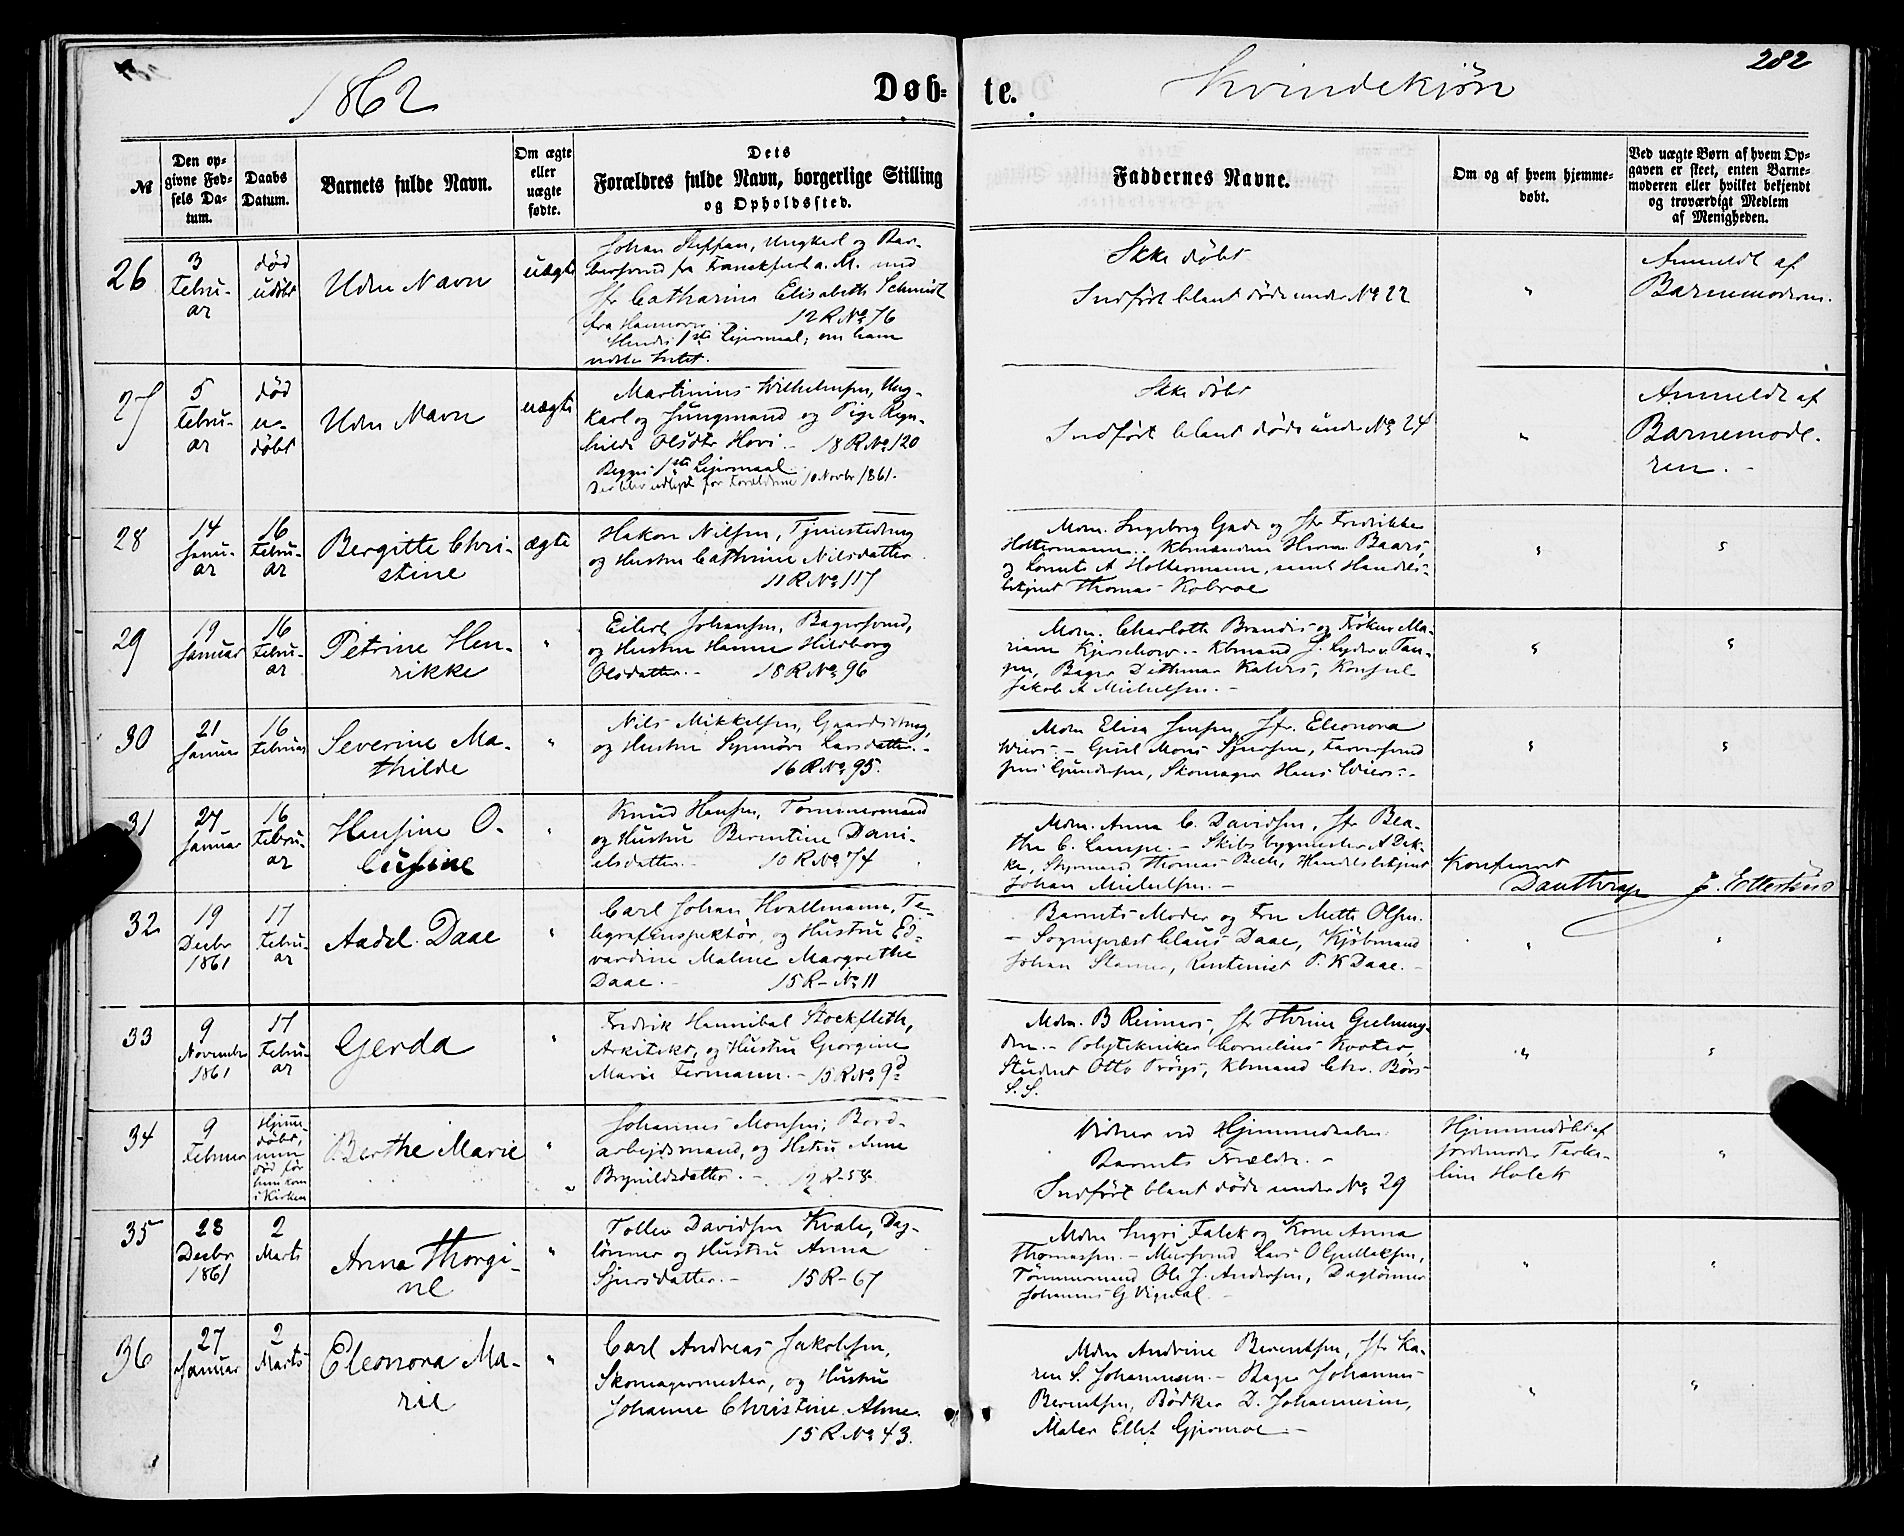 282
1862
Døb-
te.
Kvindekjøn
№
Den op-
givne Fød-
sels Da-
tum.
Daabs
Datum.
Barnets fulde Navn.
Om ægte
eller
uægte
fødte.
Dets
Forældres fulde Navn, borgerlige Stilling
og Opholdssted.
Faddernes Navne.
Om og af hvem hjemme-
døbt.
Ved uægte Børn af hvem Op-
gaven er skeet, enten Barne-
moderen eller hvilket bekjendt
og troværdigt Medlem
af Menigheden.
26
3
Febru-
ar
død
udøbt
Uden Navn
uægte
Johan Steffan, Ungkarl og Bar-
bersvend fra Frankfurt a. M. med
Jfr Catharina Elisabeth Schmidt
fra Hannover. 12 R. No 76
Hendes 1ste Leiermaal; om ham
vides Intet.
Ikke døbt
Indført blant døde under No 22
"
Anmeldt af
Barnemoderen.
27
5
Febru-
ar
død
u-
døbt
Uden Navn
uægte
Martinius Wilhelmsen, Ung-
karl og Jungmand og Pige Ragn-
hilde Olsdtr Hovi. 18 R. No 120
Begges 1ste Leiermaal.
Der blev udlyst for Forældrene 10 Novbr 1861.
Ikke døbt
Indført blant døde under No 24
"
Anmeldt af
Barnemode-
ren.
28
14
Janu-
ar
16
Febru-
ar
Bergitte Chri-
stine
ægte
Hakon Nilsen, Tjenestedreng
og Hustru Cathrine Nilsdatter
11 R. No 117
Mdm. Ingeborg Gade og Jfr Fredrikke
Holtermann. Kbmændene Herm. Baars,
og Lorentz A Holtermann, samt Handels-
betjent Thomas Kobroe
"
"
29
19
Januar
16
Febru-
ar
Petrine Hen-
rikke
"
Eilert Johansen, Bagersvend,
og Hustru Hanne Hildborg
Olsdatter. 18 R. No 96
Mdm. Charlotte Brandis og Frøken Ma-
riane Kjerschow. Kbmand J. Lyder v Tan-
gen, Bager Dithmar Kahrs, Konsul
Jakob A Michelsen.
"
"
30
21
Januar
16
Februar
Severine Ma-
thilde
"
Nils Mikkelsen, Gaardsdreng,
og Hustru Synnøve Larsdatter.
16 R. No 95.
Mdm Elisa Jensen, Jfr. Eleonora
Wiers. Gjest Mons Sjursen, Farversvend
Jens Gundersen, Skomager Hans Wiers.
"
"
31
27
Januar
16
Febru-
ar
Hansine O-
lusine
"
Knud Hansen, Tømmermand
og Hustru Berentine Dani-
elsdatter. 10 R. No 74
Mdm. Anna C. Davidsen, Jfr Bea-
the C. Lampe. Skibsbygmester A Dek-
ke, Styrmand Thomas Bech, Handelsbetjent
Johan Michelsen.
Konfereret
Danthrap
32
19
Decbr
1861
17
Febru-
ar
Aadel Daae
"
Carl Johan Hvallmann, Te-
legrafinspektør, og Hustru Ed-
vardine Maline Margrethe
Daae. 15 R. No 11
Barnets Moder og Fru Mette Olsen.
Sognepræst Claus Daae, Kjøbmand
Johan Stamer, Rentenist P. K Daae.
"
"
33
9
November
1861
17
Febru-
ar
Gerda
"
Fredrik Hannibal Stockfleth,
Arkitekt, og Hustru Georgine
Marie Fermann. 15 R No 9d
Mdm. B Reimers, Jfr Thrine Gulning-
den. Polytekniker Cornelius Koster,
Student Otto Prøys, Kbmand Chr. Børs
S. S.
"
"
34
9
Februar
Hjemme-
døbt,
men
død før
hun kom
i Kirken
Berthe Marie
"
Johannes Monsen; Bord-
arbejdsmand, og Hstru Anne
Brynildsdatter. 12 R 58
Vidner ved Hjemmedaaben:
Barnets Forældre.
Indført blant døde under No 29
Hjemmedøbt af
Jordemoder Terke-
line Holck
"
35
28
Decbr
1861
2
Marts
Anna Thorgi-
ne
"
Tollev Davidsen Kvale, Dag-
lønner og Hustru Anna
Sjursdatter. 15 R 67
Mdm Ingri Falck og Kone Anna
Thomassen. Mursvend Lars O Gulleksen,
Tømmermand Ole J. Andersen, Daglønner
Johannes G Vigedal.
"
"
36
27
Januar
2
Marts
Eleonora Ma-
rie
"
Carl Andreas Jakobsen,
Skomagermester, og Hustru
Johanne Christine Alme.
15 R. No 43.
Mdm Andrine Berentsen, Jfr Ka-
ren S. Johannesen. Bager Johannes
Berentsen, Bødker D. Johannesen,
Maler Ellef Gjermoe
"
"